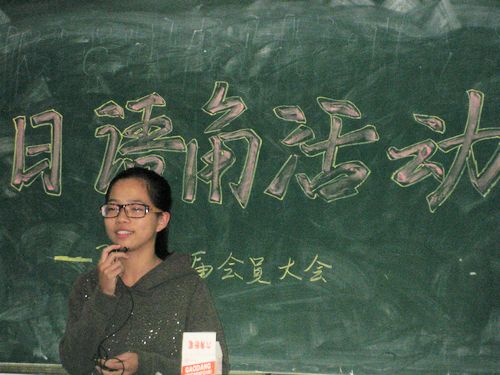 日语角活动
届会员大会
GAODANG